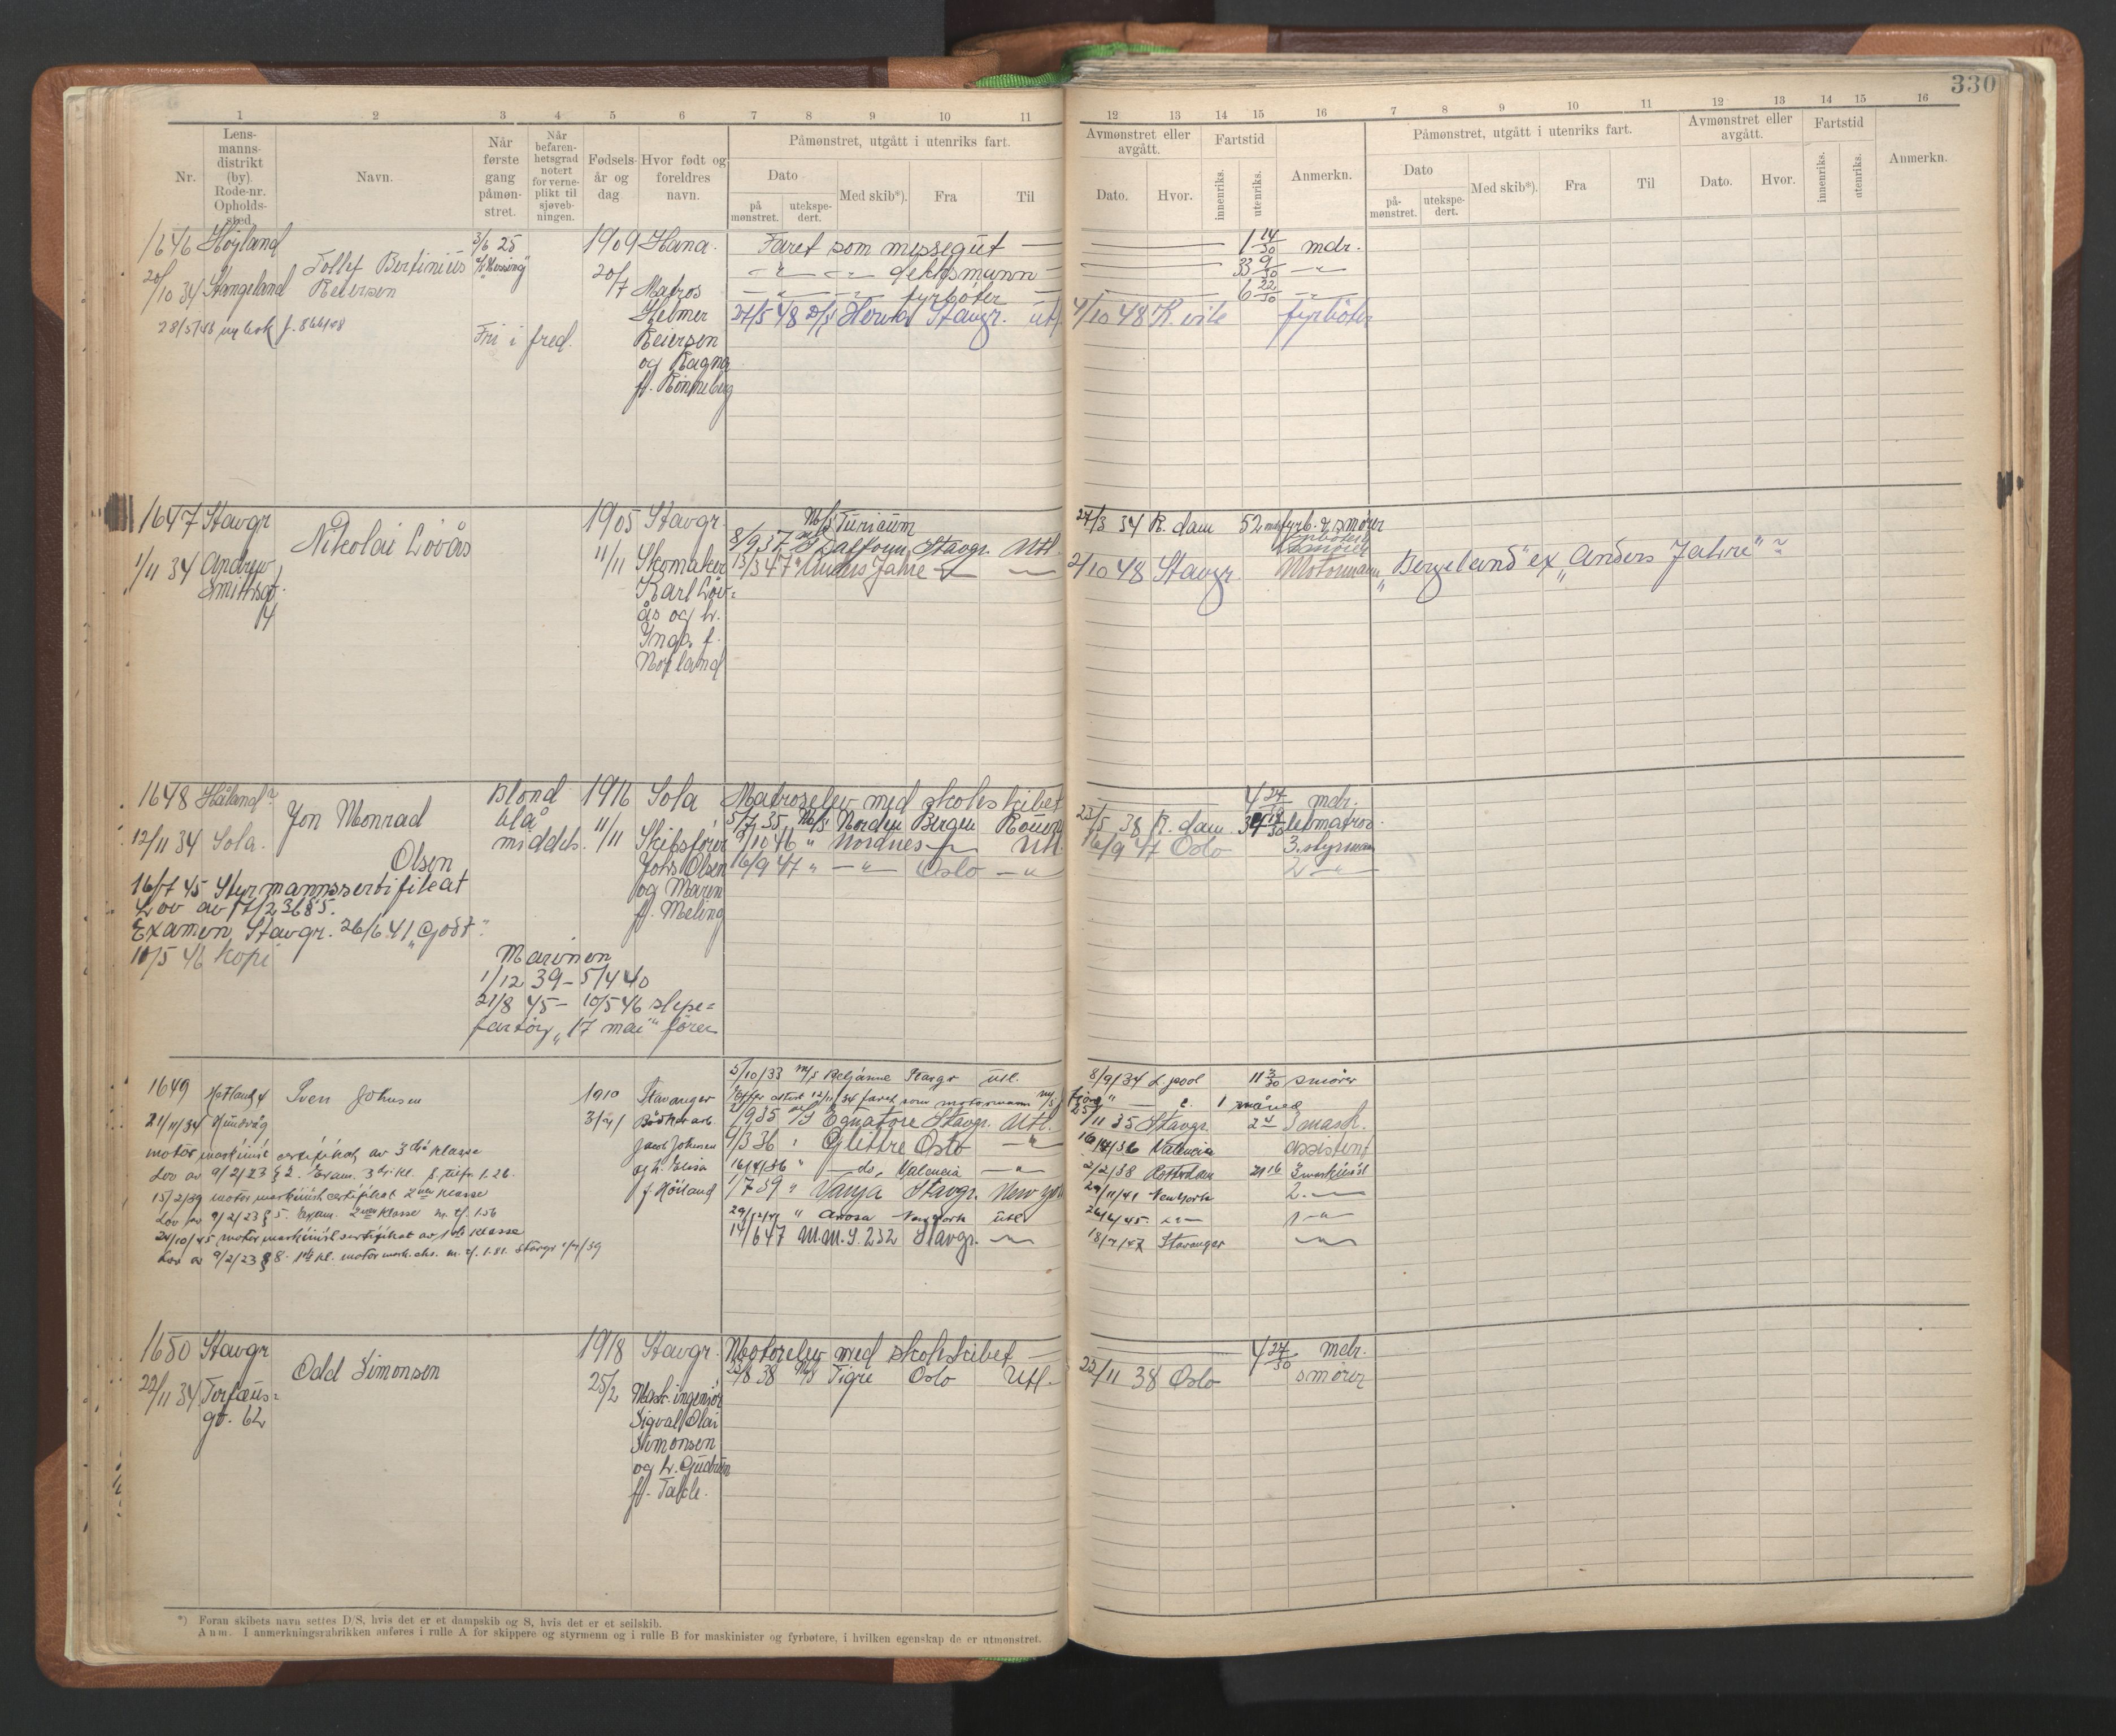 330
1 2 3 4 5 6 7 8 9 10 11
12 13 14 15 16 7 8 9 10 11 12 13 14 15 16
Nr.
Lens-
manns-
distrikt
(by).
Rode-nr.
Opholds-
sted.
Navn.
Når
første
gang
påmøn-
stret.
Når
befaren-
hetsgrad
notert
for verne-
plikt til
sjøveb-
ningen.
Fødsels-
år og
dag
Hvor født og
foreldres
navn.
Påmønstret, utgått i utenriks fart.
Dato
på
mønstret.
utekspe-
dert.
Med skib*).
Fra
Til
Avmønstret eller
avgått.
Dato.
Hvor.
Fartstid
innenriks.
utenriks.
Anmerkn.
Påmønstret, utgått i utenriks fart.
Dato
på-
mønstret.
utekspe-
dert.
Med skib*).
Fra
Til
Avmønstret eller
avgått.
Dato.
Hvor.
Fartstid
innenriks.
utenriks.
Anmerkn.
1646 Høyland
20/10 34 Stangeland
Tollef Bertinius
Reiersen
28/5/48 ny bok
3/6 25
Fri i fred.
1909
20/7
Hana.
Matros
Helmer
Reiersen
og Ragna
f. Rønneberg
Faret som messegut — 1 14/30 mdr.
— " — — " — dekksmann — 33 9/30 — " —
— " — — " — fyrbøter — 6 22/30 — " —
27/5 48 Stavgr. utl. 4/10 48 fyrbøter
1647 Stavgr
1/11 34 Andrew
Smithsgt.
4
Nikolai Lövås
1905
11/11
Stavgr.
Skomaker
Karl Löv-
ås og h.
Inga f.
Norland
M/S Turicum 27/3 34 R. dam 52 mdr fyrb. & smører
8/9 37 Stavgr. Utl.
13/3 47 " Anders Jahre — " — — " — 2/10 48 Stavgr. Motormann "Bergeland" ex "Anders Jahre"
1648 Håland
12/11 34 Sola.
Jon Monrad
Olsen
16/7 45 Styrmannssertifikat
Lov av
Examen Stavgr. 26/6 41 "Godt".
10/5 46 kopi
Blond
blå
middels.
1916
11/11
Sola
Skibsfører
Johs Olsen
og Maren
f. Meling
Marinen
1/12 39 – 5/4 40
21/8 45 – 10/5 46 slepe-
fartöy "17 mai" förer
Matroselev med skoleskibet 4 27/30 mdr.
5/7 35 M/S Norden Bergen Rouen 23/5 38 R. dam. lettmatros.
9/10 46 " Nordnes — " — Utl. 16/9 47 Oslo 3. styrman
16/9 47 " — " — Oslo — " — 2 — " —
1649 Hetland
21/11/34 Hundvåg
Sven Johnsen
motormaskinist certifikat av 3die klasse
Lov av 9/2/23 § 2. Exam. 3die kl.
15/2/39 motormaskinistcertifikat 2nen klasse
Lov av 9/2/23 § 5. Exam. 2nen klasse m. cf. 1.56
24/10/45 motormaskinistsertifikat av 1ste klasse
Lov av 9/2/23 § 8. 1ste kl.
1910
Stavanger
Jacob Johnsen
og h. Elisa
f. Höiland
5/10/33 M/S Beljanne Stavgr Utl. 8/9/34 L.pool 11 3/30 smører
Efter attest 12/11/34 faret som motormann 1 måned
Equatore Stavgr. Utl. 25/11 35 Stavgr. 3 mask.
4/3 36 " Glittre Oslo — " — 16/4/36 Valencia assistent
16/4/36 " — do. Valencia — " — 2/2/38 Rotterdam 21 16 3 maskinist
1/7 39 " Vanja Stavgr. New York 29/11/41 New York 2. — " —
29/12/41 " Arosa New York utl. — " —
14/6 47 M.M.S. 232 Stavgr. — " — 18/7/47 Stavanger — " —
1650 Stavgr
22/11 34 Torfæus-
gt. 62
Odd Simonsen
1918
25/2
Stavgr.
Mask. ingeniør
Sigval Olai
Simonsen
og h. Gudrun
f. Takle.
Motorelev med skoleskibet — 4 27/30 mdr.
23/8 38 M/S Tigre Oslo Utl. 22/11 38 Oslo smører
*) Foran skibets navn settes D/S, hvis det er et dampskib og S, hvis det er et seilskib.
Anm. I anmerkningsrubrikken anføres i rulle A for skippere og styrmenn og i rulle B for maskinister og fyrbøtere, i hvilken egenskap de er utmønstret.